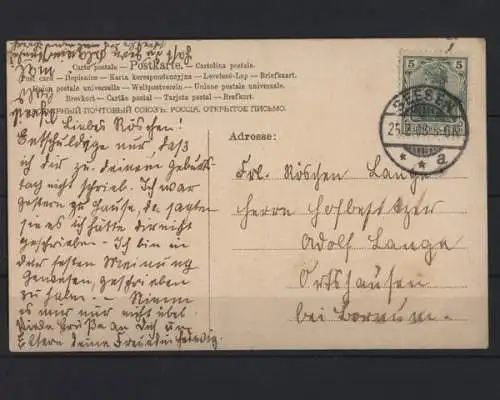 Carte postale – Postkarte. – Cartolina postale
Post card – Dopisnice – Karta korespondencyjna – Levelező-Lap – Briefkaart
Union postale universelle – Weltpostverein. – Unione postale universale.
Brevkort – Cartão postal – Tarjeta postal – Brefkort.
ПОЧТОВЫЙ СОЮЗЪ. РОССІЯ. ОТКРЫТОЕ ПИСЬМО.
5 5
SEESEN
a
Liebes Röschen!
Entschuldige nur daß
ich dir zu deinem Geburts
tag nicht schrieb. Ich war
gestern zu Hause, da sagten
sie es ich hätte dir nicht
geschrieben – Ich bin in
der festen Meinung
gewesen, geschrieben
zu haben. – Nimm
es mir nur nicht übel.
Viele Grüße an Dich u.
Eltern deine Freundin Hedwig.
Adresse:
Frl. Röschen Lange
Herrn Hofbesitzer
Adolf Lange
Ortshausen
bei Bornum.